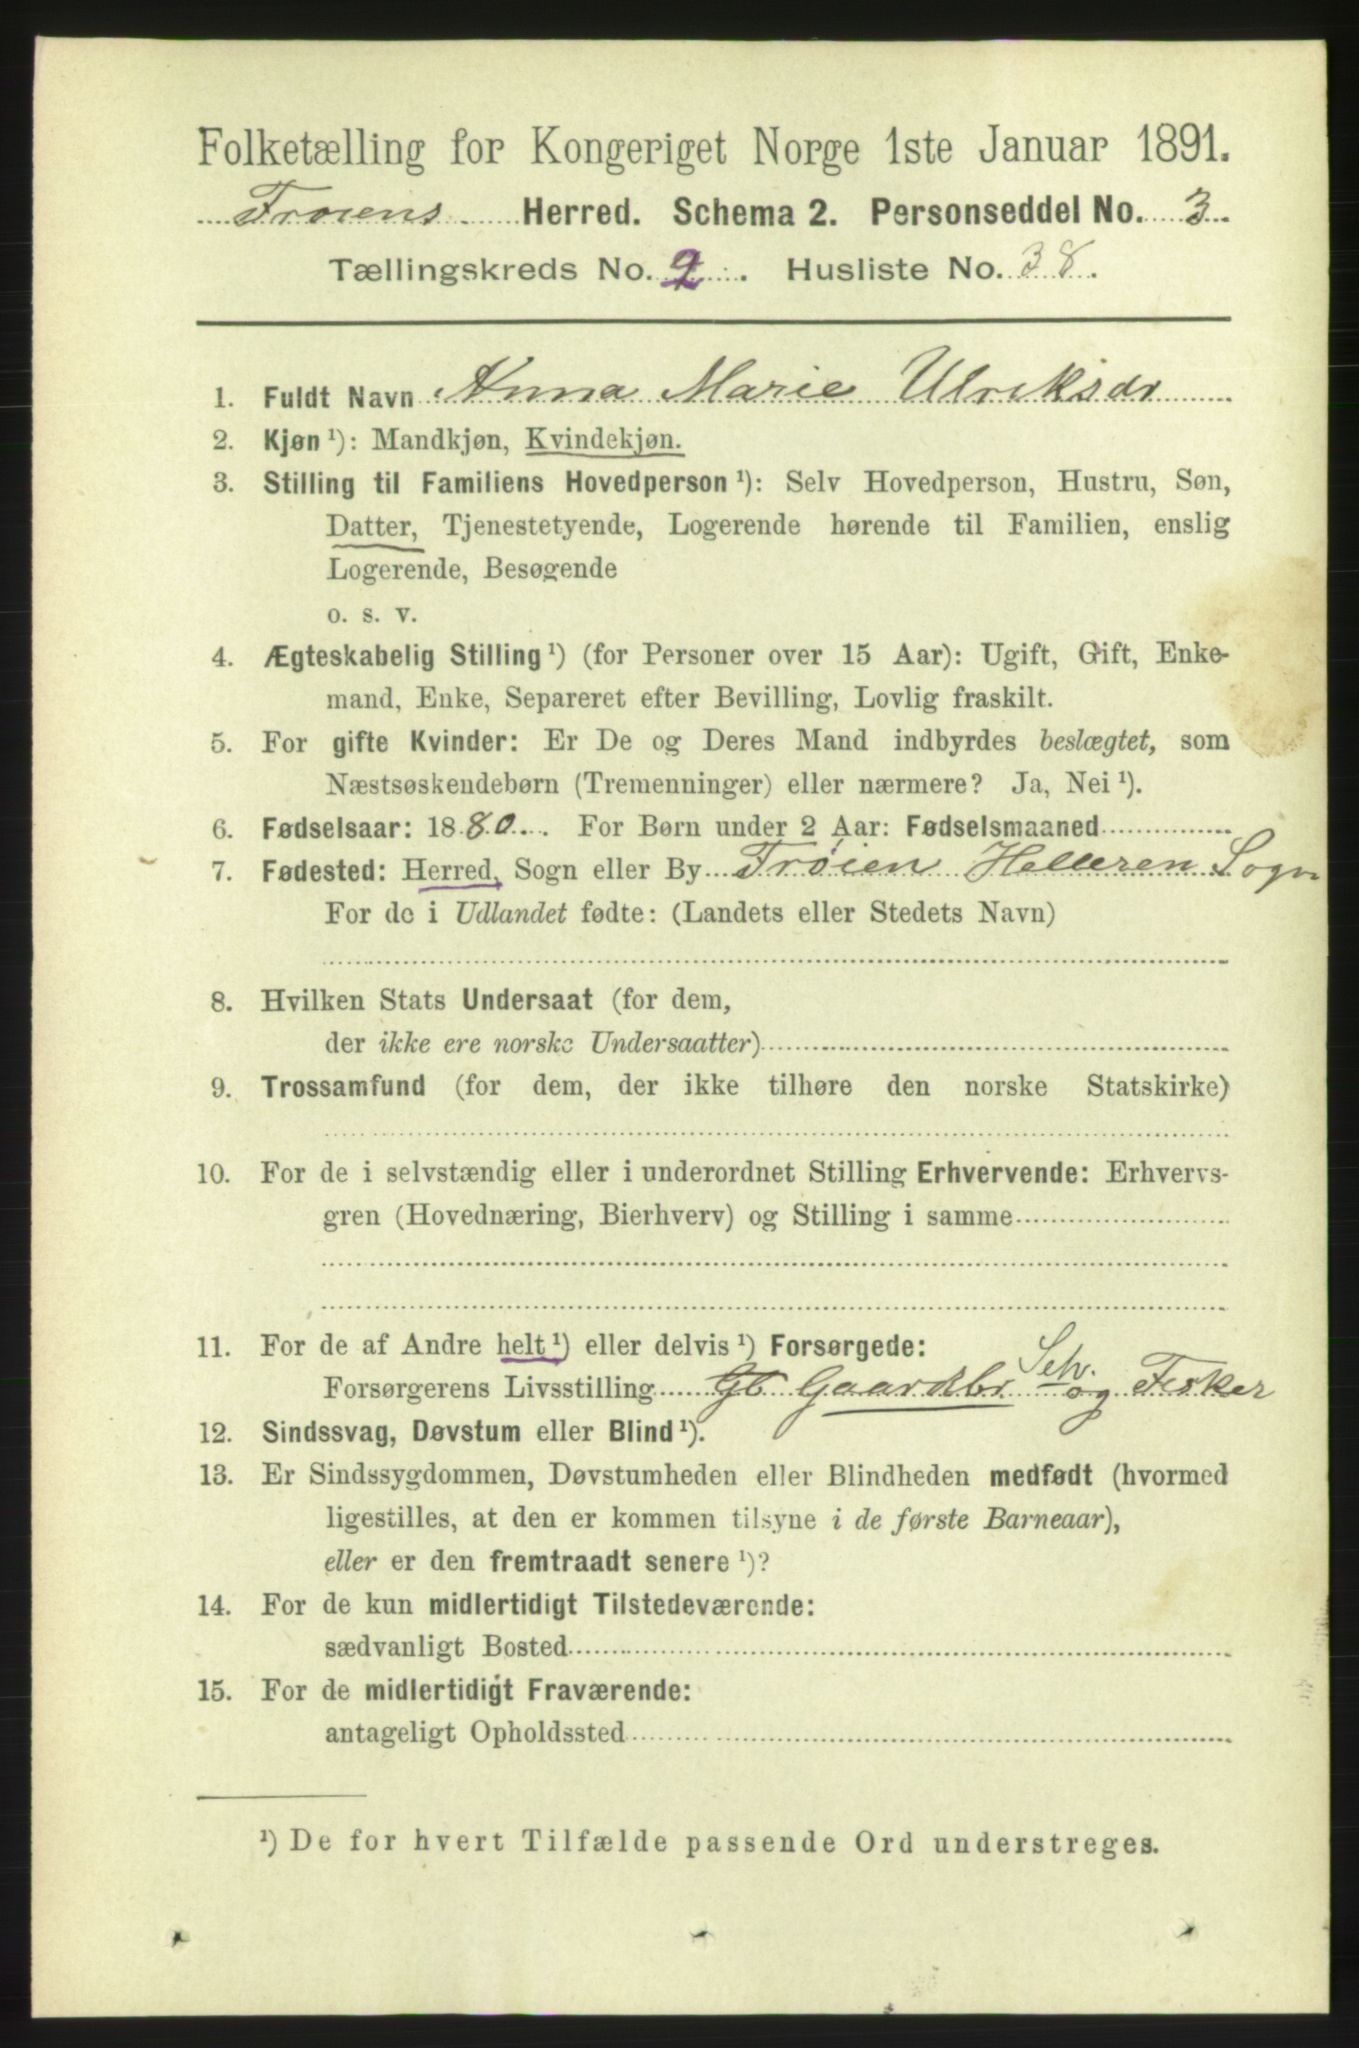 Folketælling for Kongeriget Norge 1ste Januar 1891.
Frøiens Herred. Schema 2. Personseddel No. 3.
Tællingskreds No. 9. Husliste No. 38.
1. Fuldt Navn Anna Marie Ulriksdr
2. Kjøn ¹): Mandkjøn, Kvindekjøn.
3. Stilling til Familiens Hovedperson ¹): Selv Hovedperson, Hustru, Søn,
Datter, Tjenestetyende, Logerende hørende til Familien, enslig
Logerende, Besøgende
o. s. v.
4. Ægteskabelig Stilling ¹) (for Personer over 15 Aar): Ugift, Gift, Enke-
mand, Enke, Separeret efter Bevilling, Lovlig fraskilt.
5. For gifte Kvinder: Er De og Deres Mand indbyrdes beslægtet, som
Næstsøskendebørn (Tremenninger) eller nærmere? Ja, Nei ¹).
6. Fødselsaar: 1880. For Børn under 2 Aar: Fødselsmaaned
7. Fødested: Herred, Sogn eller By Frøien Helleren Sogn
For de i Udlandet fødte: (Landets eller Stedets Navn)
8. Hvilken Stats Undersaat (for dem,
der ikke ere norske Undersaatter)
9. Trossamfund (for dem, der ikke tilhøre den norske Statskirke)
10. For de i selvstændig eller i underordnet Stilling Erhvervende: Erhvervs-
gren (Hovednæring, Bierhverv) og Stilling i samme
11. For de af Andre helt ¹) eller delvis ¹) Forsørgede:
Selv.
Forsørgerens Livsstilling Gb Gaardbr og Fisker
12. Sindssvag, Døvstum eller Blind ¹).
13. Er Sindssygdommen, Døvstumheden eller Blindheden medfødt (hvormed
ligestilles, at den er kommen tilsyne i de første Barneaar),
eller er den fremtraadt senere ¹)?
14. For de kun midlertidigt Tilstedeværende:
sædvanligt Bosted
15. For de midlertidigt Fraværende:
antageligt Opholdssted
¹) De for hvert Tilfælde passende Ord understreges.